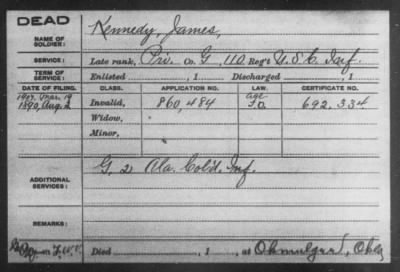 DEAD
NAME OF SOLDIER: Kennedy, James,
SERVICE: Late rank, Priv. Co. G, 110 Reg't U.S.C. Inf.
TERM OF SERVICE: Enlisted , 1 Discharged , 1
DATE OF FILING. CLASS. APPLICATION NO. LAW. CERTIFICATE NO.
1907, Mar. 19 age
1890, Aug. 2 Invalid, 860,484 I.O. 692.334
Widow,
Minor,
ADDITIONAL SERVICES: G, 2 Ala. Col'd. Inf.
REMARKS:
Died , 1 , at Okmulgee, Okla